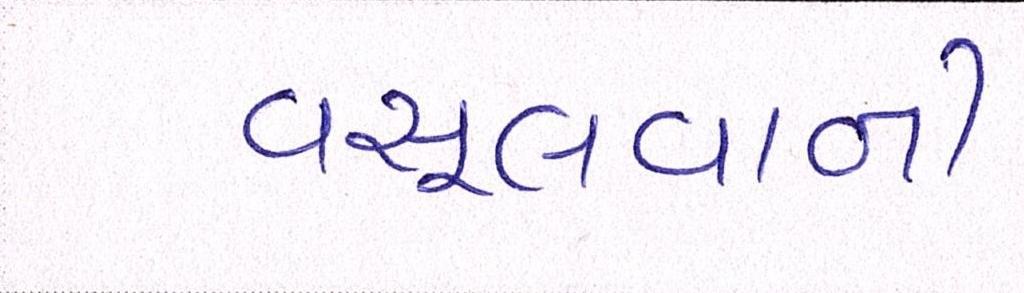 વસૂલવાની